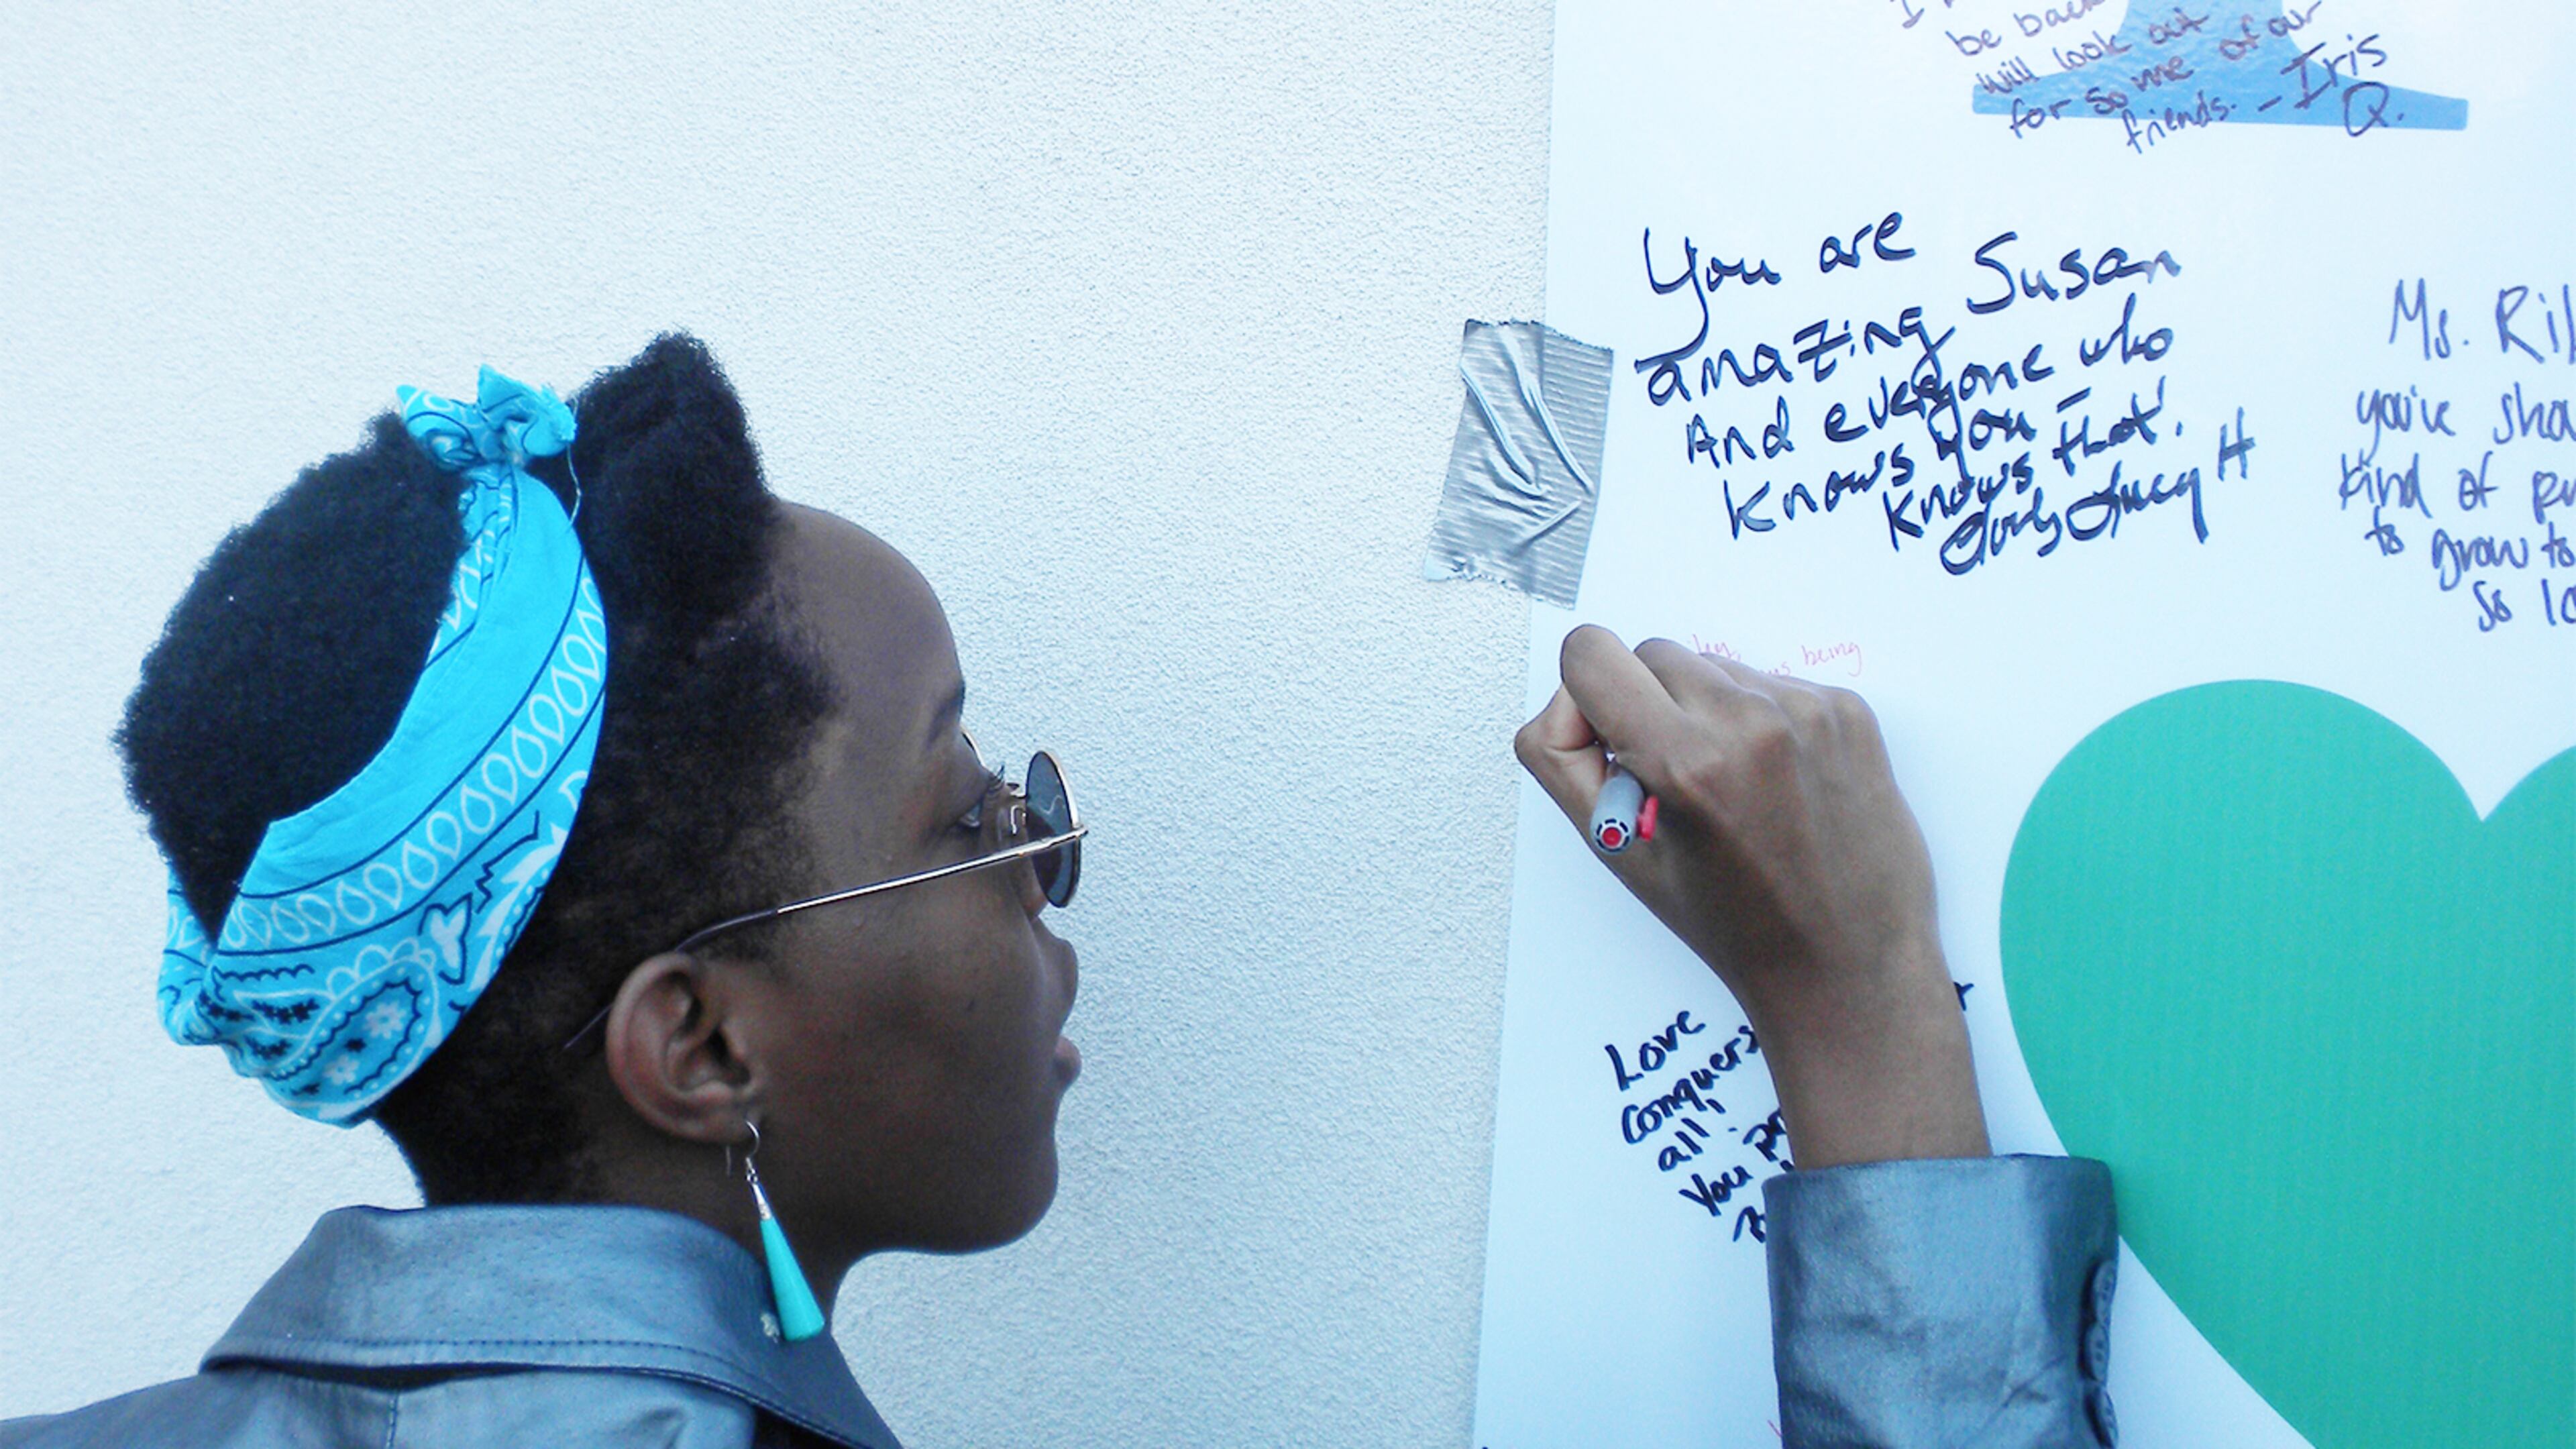 I
be back
will look out
for some of our
friends. - Iris
Q.
You are
amazing Susan
And everyone who
knows you -
knows that!
Lucy H
Ms. Ril
you're sho
kind of pe
to grow to
so lo
being
Love
conquers
all!
You pr